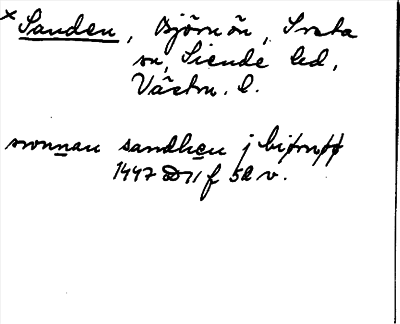 × Sanden, Björnön, Svata
sn, Siende hd,
Västm. l.
swnnan sandhen j biørnøø
1447 D 11 f 52 v.